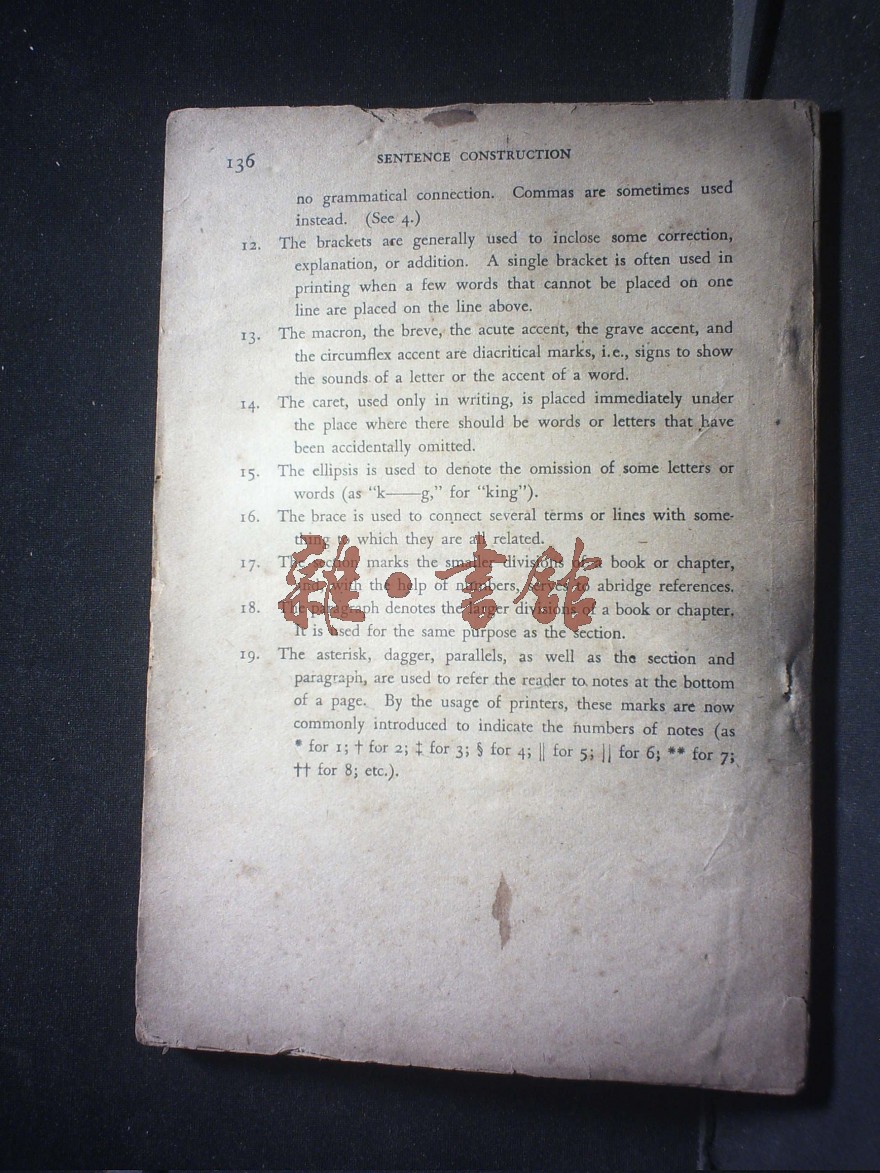 136
SENTENCE CONSTRUCTION
no grammatical connection. Commas are sometimes used
instead. (See 4.)
12. The brackets are generally used to inclose some correction,
explanation, or addition. A single bracket is often used in
printing when a few words that cannot be placed on one
line are placed on the line above.
13. The macron, the breve, the acute accent, the grave accent, and
the circumflex accent are diacritical marks, i.e., signs to show
the sounds of a letter or the accent of a word.
14. The caret, used only in writing, is placed immediately under
the place where there should be words or letters that have
been accidentally omitted.
15. The ellipsis is used to denote the omission of some letters or
words (as “k——g,” for “king”).
16. The brace is used to connect several terms or lines with some-
thing to which they are all related.
17. The section marks the smaller divisions of a book or chapter,
and, with the help of numbers, serves to abridge references.
18. The paragraph denotes the larger divisions of a book or chapter.
It is used for the same purpose as the section.
雜·書館
19. The asterisk, dagger, parallels, as well as the section and
paragraph, are used to refer the reader to notes at the bottom
of a page. By the usage of printers, these marks are now
commonly introduced to indicate the numbers of notes (as
* for 1; † for 2; ‡ for 3; § for 4; || for 5; || for 6; ** for 7;
†† for 8; etc.).